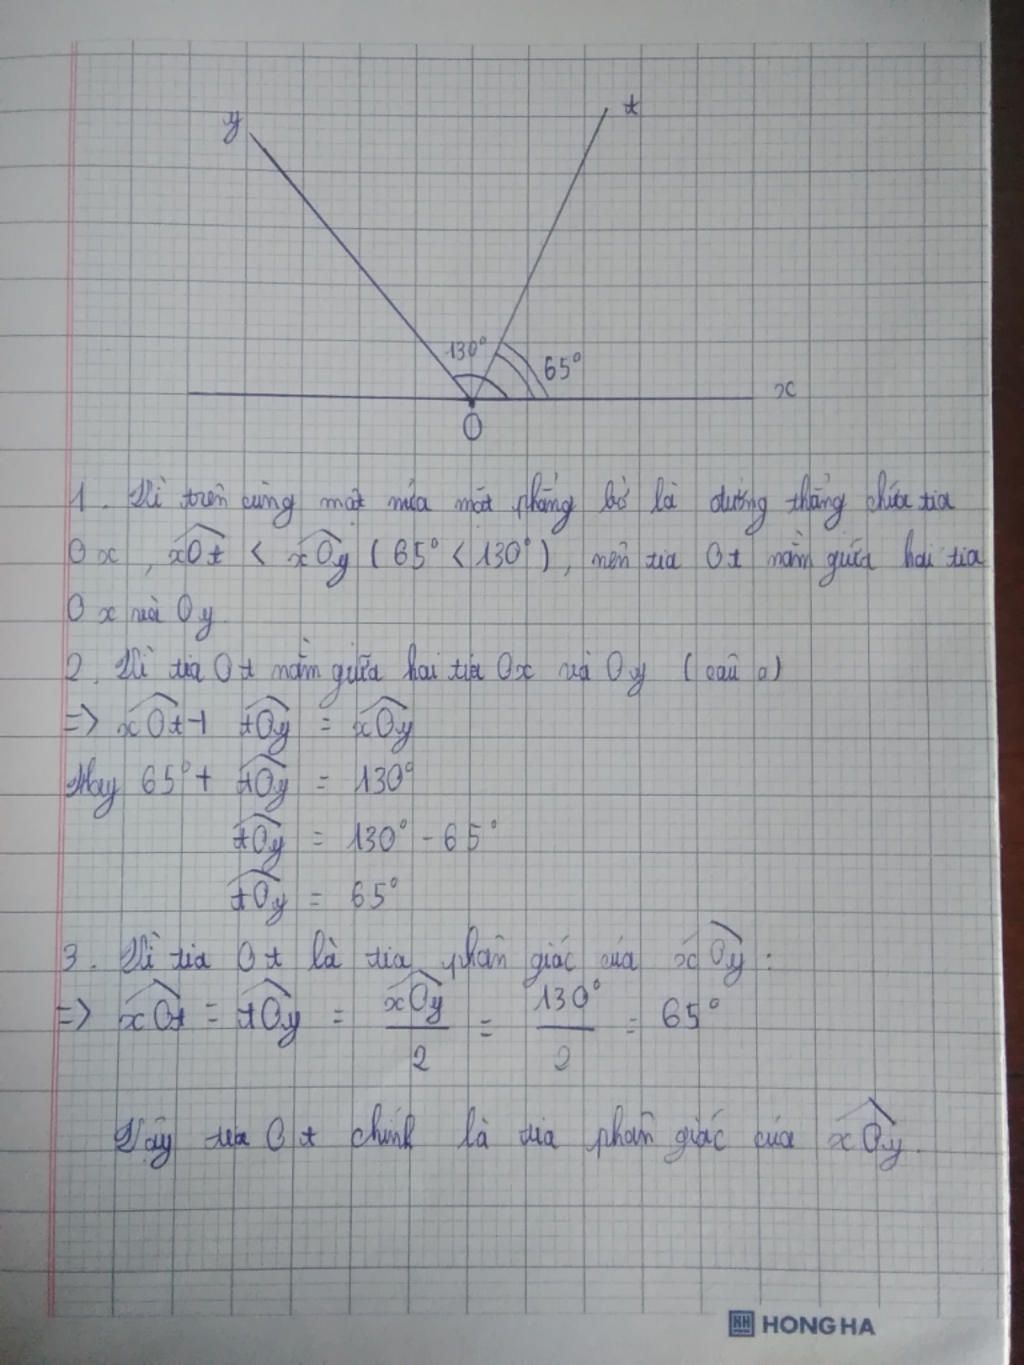 y
t
130°
65°
x
O
1. Vì trên cùng một nửa mặt phẳng bờ là đường thẳng chứa tia
Ox, xOt < xOy (65° < 130°), nên tia Ot nằm giữa hai tia
Ox và Oy
2. Vì tia Ot nằm giữa hai tia Ox và Oy (câu a)
=> xOt + tOy = xOy
Hay 65° + tOy = 130°
tOy = 130° - 65°
tOy = 65°
3. Vì tia Ot là tia phân giác của xOy :
=> xOt = tOy = xOy/2 = 130°/2 = 65°
Vậy tia Ot chính là tia phân giác của xOy.
HH HONG HA